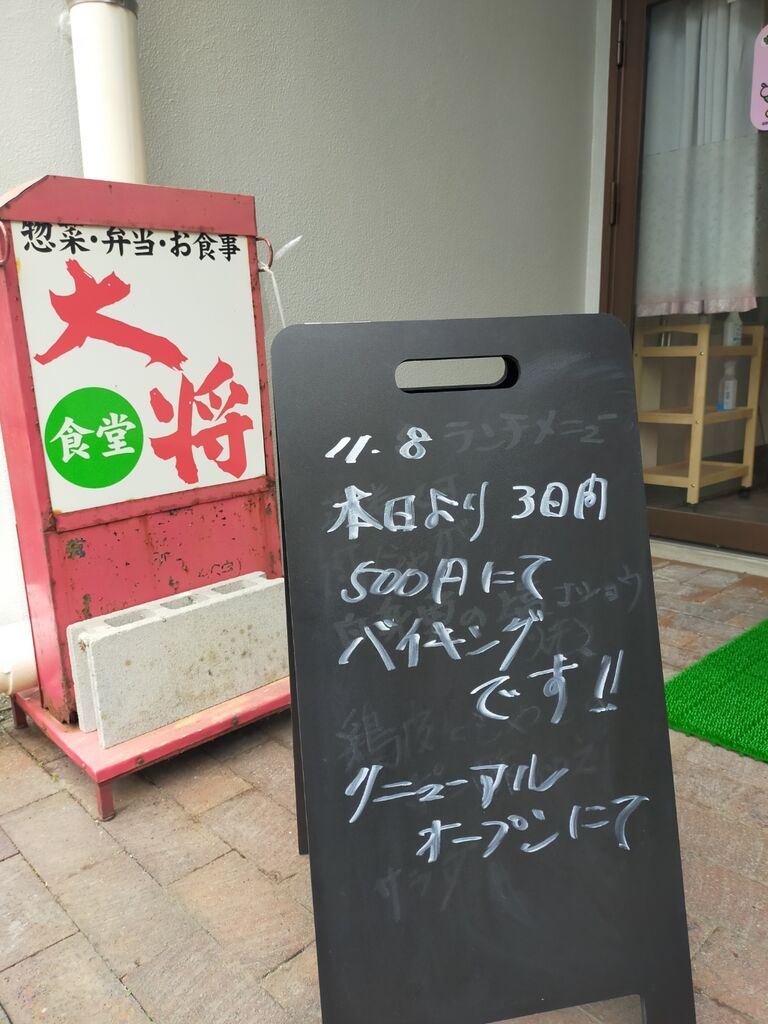 惣菜・弁当・お食事
大将
食堂
11.8
ランチメニュー
本日より 3日間
500円にて
バイキング
です!!
リニューアル
オープンにて
サラダ